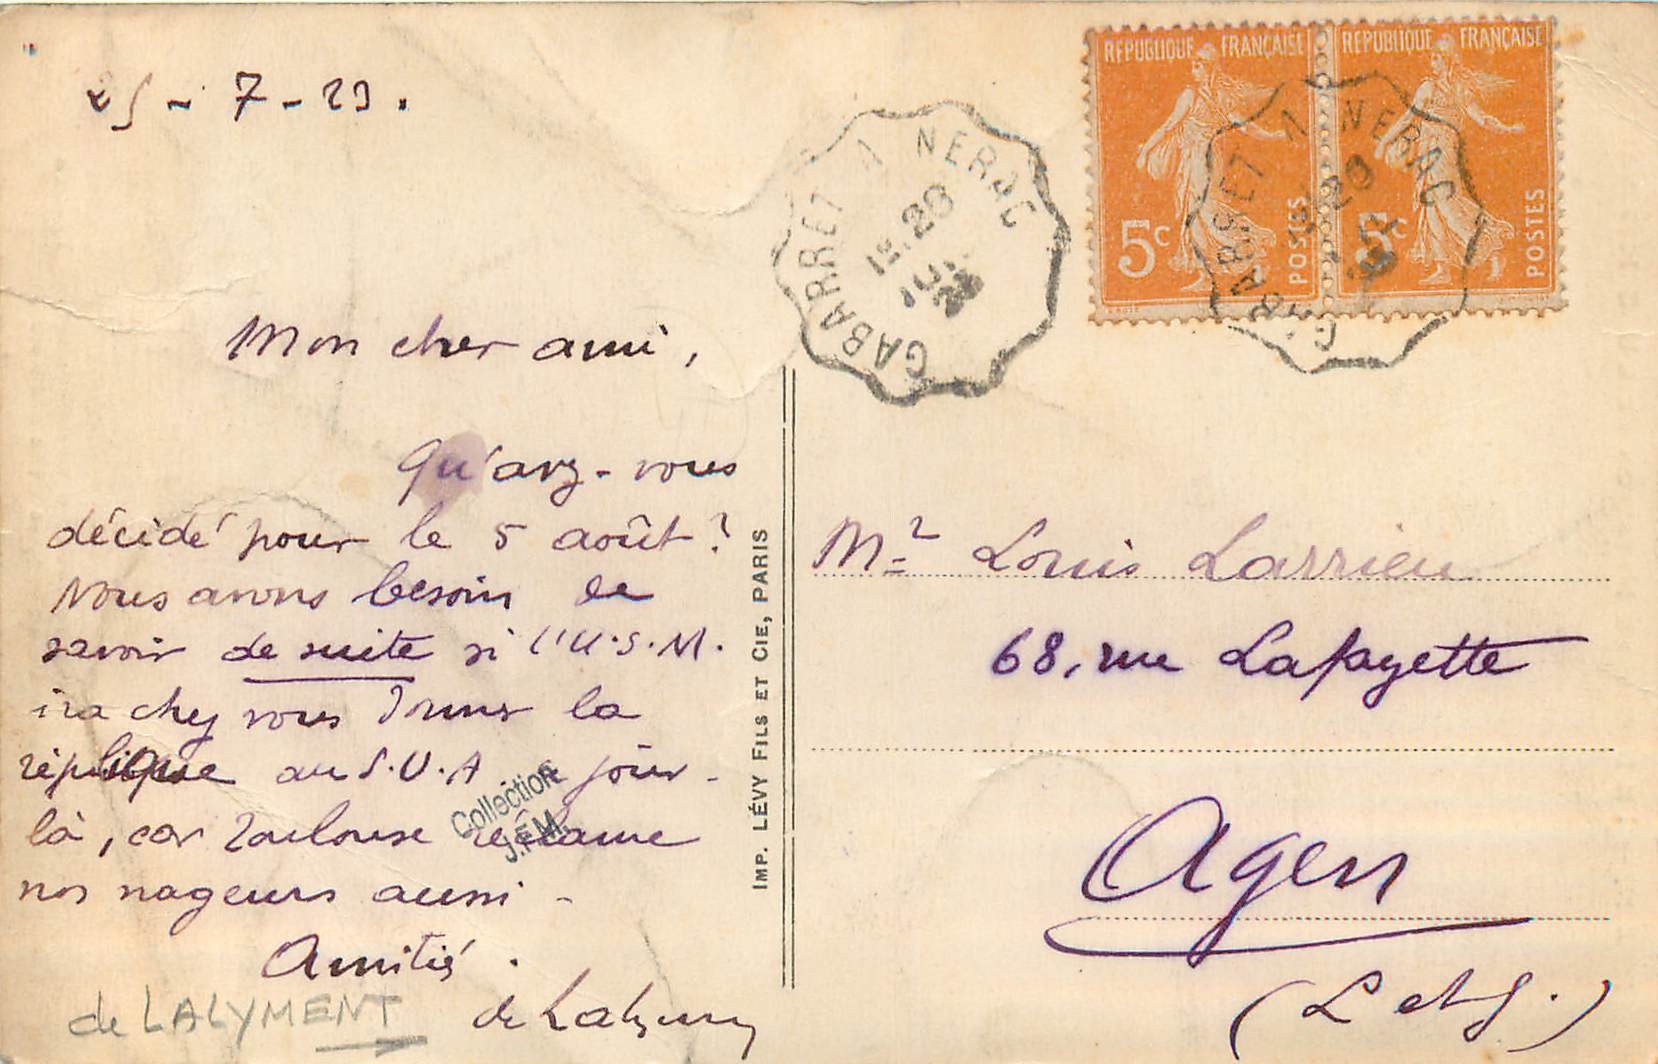 25 - 7 - 23.
Mon cher ami,
Qu'avez-vous
décidé pour le 5 août ?
Nous avons besoin de
savoir de suite si l'U.S.M.
ira chez vous donner la
réplique au S.U.A. ce jour-
là, car Toulouse réclame
nos nageurs aussi -
Amitiés.
de Lalyment
de LALYMENT
Collection
J.F.M.
IMP. LÉVY FILS ET CIE, PARIS
GABARRET A NERAC
20
23
REPUBLIQUE FRANÇAISE
5c
POSTES
REPUBLIQUE FRANÇAISE
5c
POSTES
GABARRET A NERAC
20
Mr Louis Larrieu
68, rue Lafayette
Agen
(L et G.)